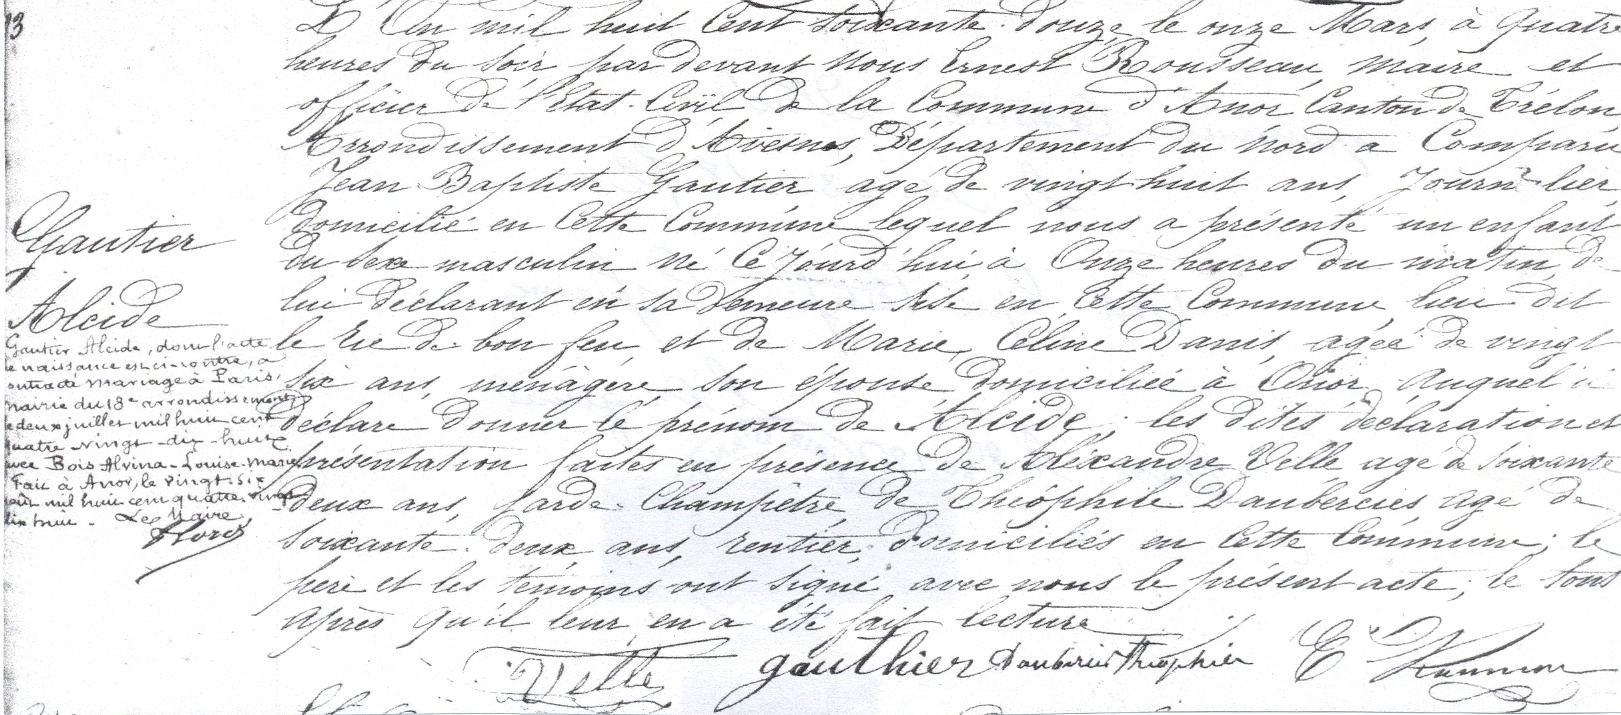 13
Gautier
Alcide
Gautier Alcide, dont l'acte
de naissance est ci-contre, a
contracté mariage à Paris,
mairie du 18e arrondissement
le deux juillet mil huit cent
quatre-vingt-dix-huit
avec Bois Alvina-Louise-Marie
Fait à Anor, le vingt-six
août mil huit cent quatre-vingt
dix huit. Le Maire,
L'An mil huit Cent Soixante-Douze, le onze Mars, à Quatre
heures du Soir, par devant Nous Ernest Rousseau, maire et
officier de l'Etat-Civil de la Commune d'Anor, Canton de Trélon
Arrondissement d'Avesnes, Département du Nord a Comparu
Jean Baptiste Gautier agé de vingt huit ans, Journalier,
domicilié en Cette Commune lequel nous a présenté un enfant
du Sexe masculin Né Ce Jourd'hui, à Onze heures du matin, de
lui déclarant en sa Demeure Sise en Cette Commune, lieu dit
le de bon feu, et de Marie, Céline Danis, agée de vingt
Six ans, ménagère son épouse domiciliée à Anor, auquel il a
déclaré donner le prénom de Alcide; les dites déclaration et
présentation faites en présence de Aléxandre Velle agé de Soixante
deux ans, Garde-Champêtre, de Théophile Daubercies agé de
Soixante-deux ans, rentier, domiciliés en Cette Commune; le
père et les témoins ont Signé avec nous le présent acte, le tout
après qu'il leur en a été fait lecture
Velle gauthier Daubercies Théophile E Rousseau